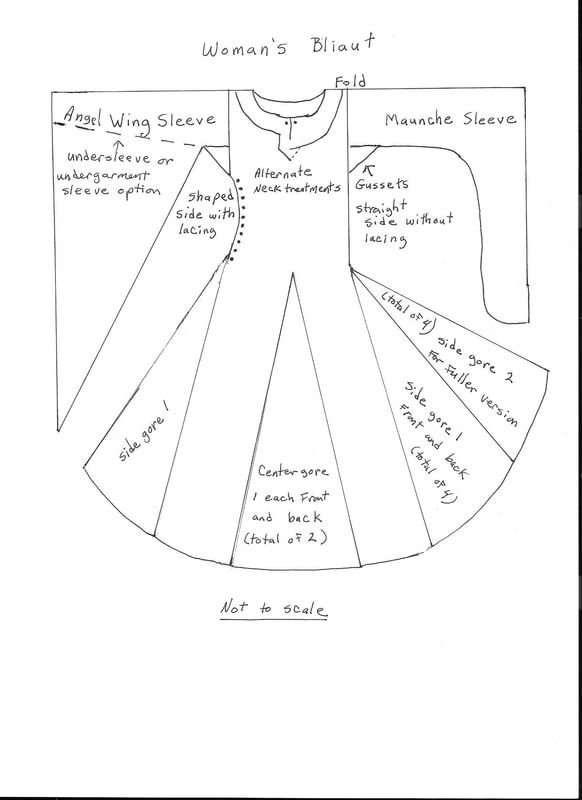 Woman's Bliaut
Fold
Angel Wing Sleeve
Maunche Sleeve
undersleeve or
undergarment
sleeve option
Alternate
Neck treatments
Gussets
straight
side without
lacing
shaped
side with
lacing
(total of 4) side gore 2
For Fuller version
side gore 1
Side gore 1
Front and back
(total of 4)
Center gore
1 each Front
and back
(total of 2)
Not to scale